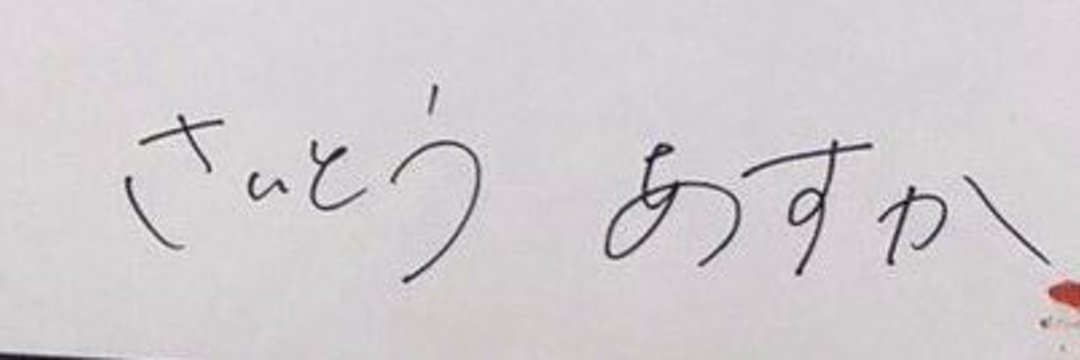 さいとう あすか